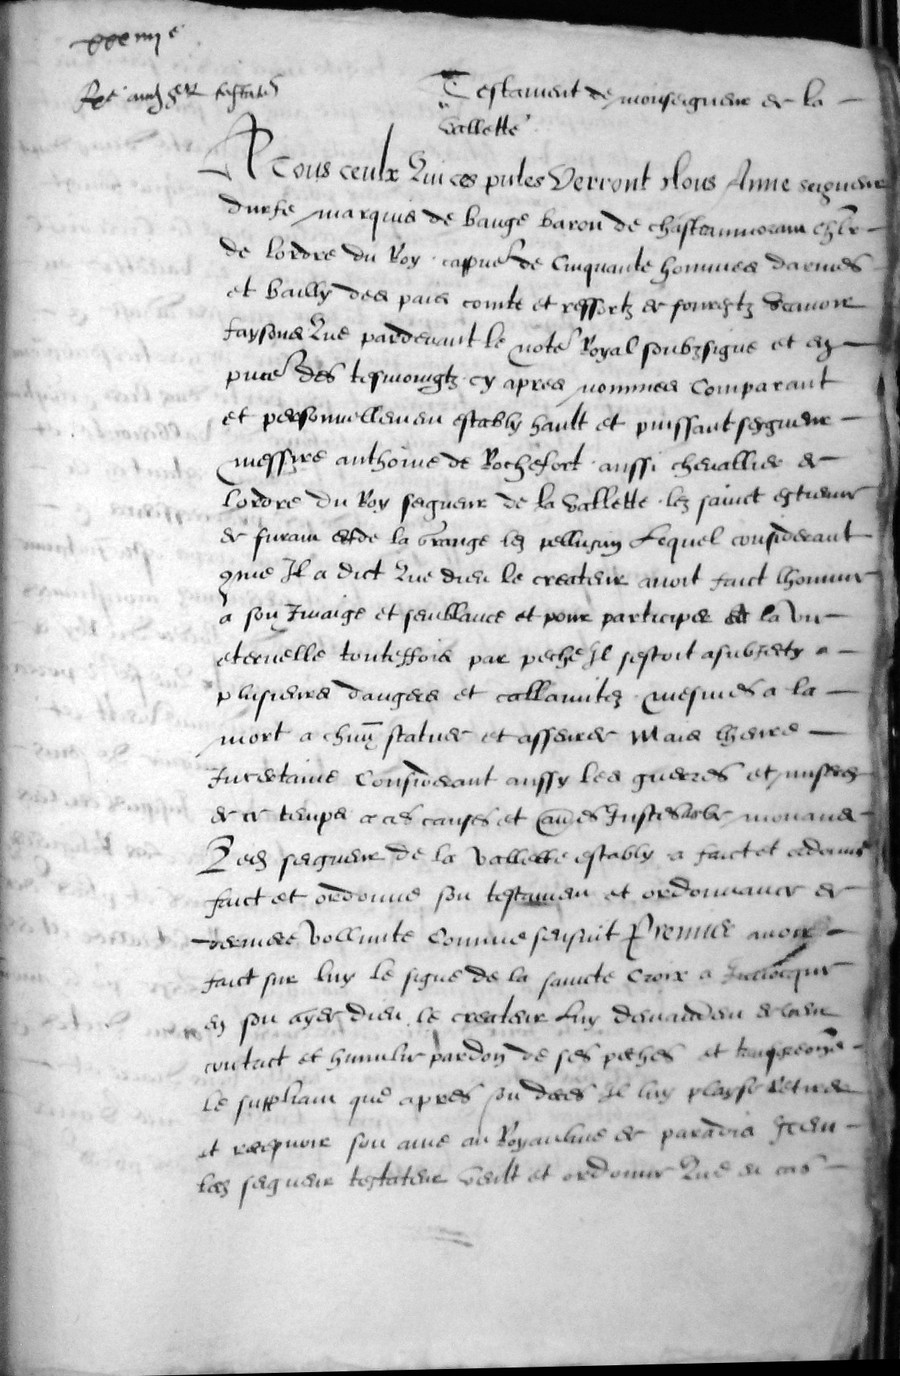 Testament de monseigneur de la
Vallette
A Tous ceulx Qui ces pntes Verront Nous Anne seigneur
durfe marquis de bauge baron de chasteaumoran chlr
de lordre du Roy cappne de Cinquante hommes darmes
et bailly des pais comte et ressortz de fourestz Scavoir
faysons Que pardevant le note Royal soubzsigne et en
pnce des tesmoingtz cy apres nommes Comparant
et personnellemen estably hault et puissant seigneur
messire anthoine de Rochefort aussi chevallier de
lordre du Roy seigneur de la Vallette lez sainct estienne
de furam et de la Grange lez pellussin Lequel considerant
Que Il a dict Que dieu le createur avoit faict lhomme
a son Imaige et semblance et pour participer a la vie
eternelle touteffois par peche Il sestoit asubiecty a
plusieurs dangers et callamitez mesmes a la
mort a chun statuer et asseurer Mais lheure
Incertaine Considerant aussy les guerres et miseres
de ce temps a ces causes et aues Justes a le mouvans
Led seigneur de la Vallette estably a faict et ordonne
faict et ordonne son testamen et ordonnance de
derniere Vollunte Comme sensuit Premier avoir
faict sur luy le signe de la saincte Croix a Invocque
en son ayde dieu le createur Luy demandan de cueur
contrict et humble pardon de ses peches et
le suppliant que apres son deces Il luy playse Retirer
et recepvoir son ame au Royaulme de paradis Item
led seigneur testateur Veult et ordonne Que en cas